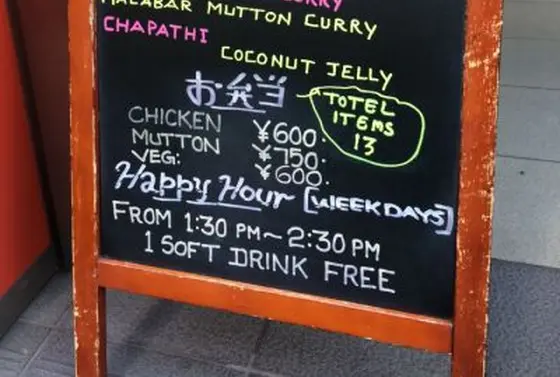 CURRY
MALABAR MUTTON CURRY
CHAPATHI
COCONUT JELLY
お弁当
TOTEL
ITEMS
13
CHICKEN ¥600.
MUTTON ¥750.
VEG: ¥600.
Happy Hour [WEEKDAYS]
FROM 1:30 PM~2:30 PM
1 SOFT DRINK FREE